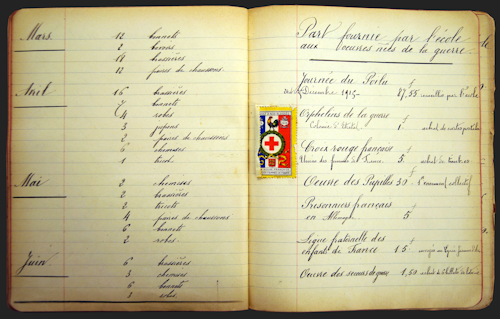 Mars. 12 bonnets
2 
12 brassières
12 paires de chaussons.
Avril 16 brassières
7 bonnets
4 robes
3 jupons
2 paires de chaussons
6 chemises
1 tricot.
Mai 2 chemises
2 brassières
2 tricots
4 paires de chaussons
6 bonnets
2 robes.
Juin 6 brassières
3 chemises
6 bonnets
3 robes.
Part fournie par l'école
aux oeuvres nées de la guerre.
Journée du Poilu
Décembre 1915. 87,55 par l'école
Orphelins de la guerre
1 achat de
Croix rouge française
Union des femmes de France. 5 achat de timbres
Oeuvre des Pupilles 30
Prisonniers français
en Allemagne 5
Ligue fraternelle des
enfants de France 15
Oeuvre des 1,50 achat de